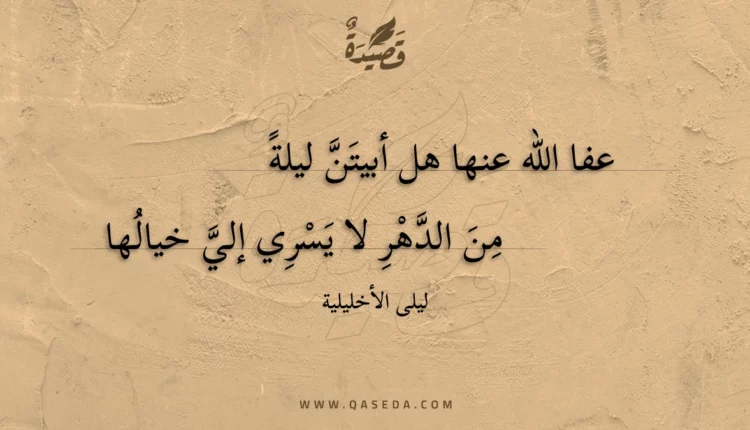 قَصِيدَةٌ
عفا الله عنها هل أبيتَنَّ ليلةً
مِنَ الدَّهْرِ لا يَسْرِي إليَّ خيالُها
ليلى الأخليلية
WWW.QASEDA.COM